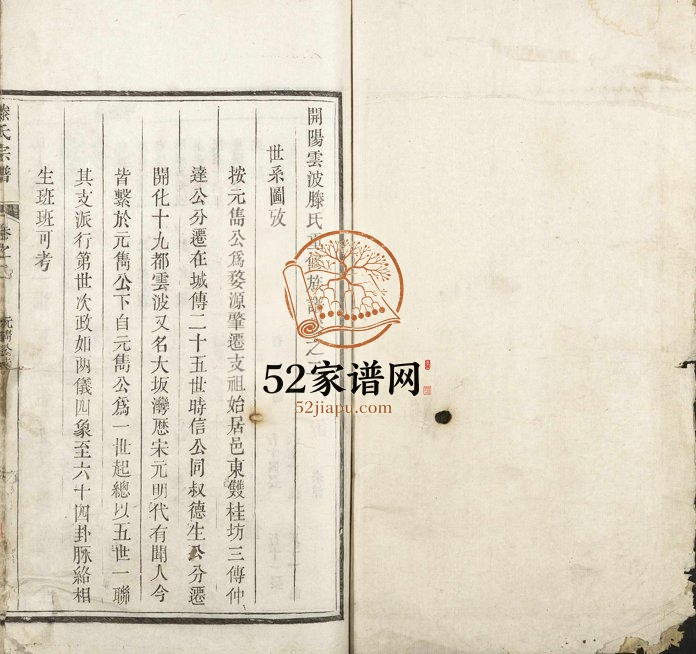 開陽雲波滕氏重修族譜卷之
世系圖攷
按元雋公爲婺源肇遷支祖始居邑東雙桂坊三傳仲
達公分遷在城傳二十五世時信公同叔德生公分遷
開化十九都雲波又名大坂灣歷宋元明代有聞人今
皆繫於元雋公下自元雋公爲一世起總以五世一聯
其支派行第世次政如兩儀四象至六十四卦脉絡相
生班班可考
滕氏宗譜
卷之
52家谱网
52jiapu.com